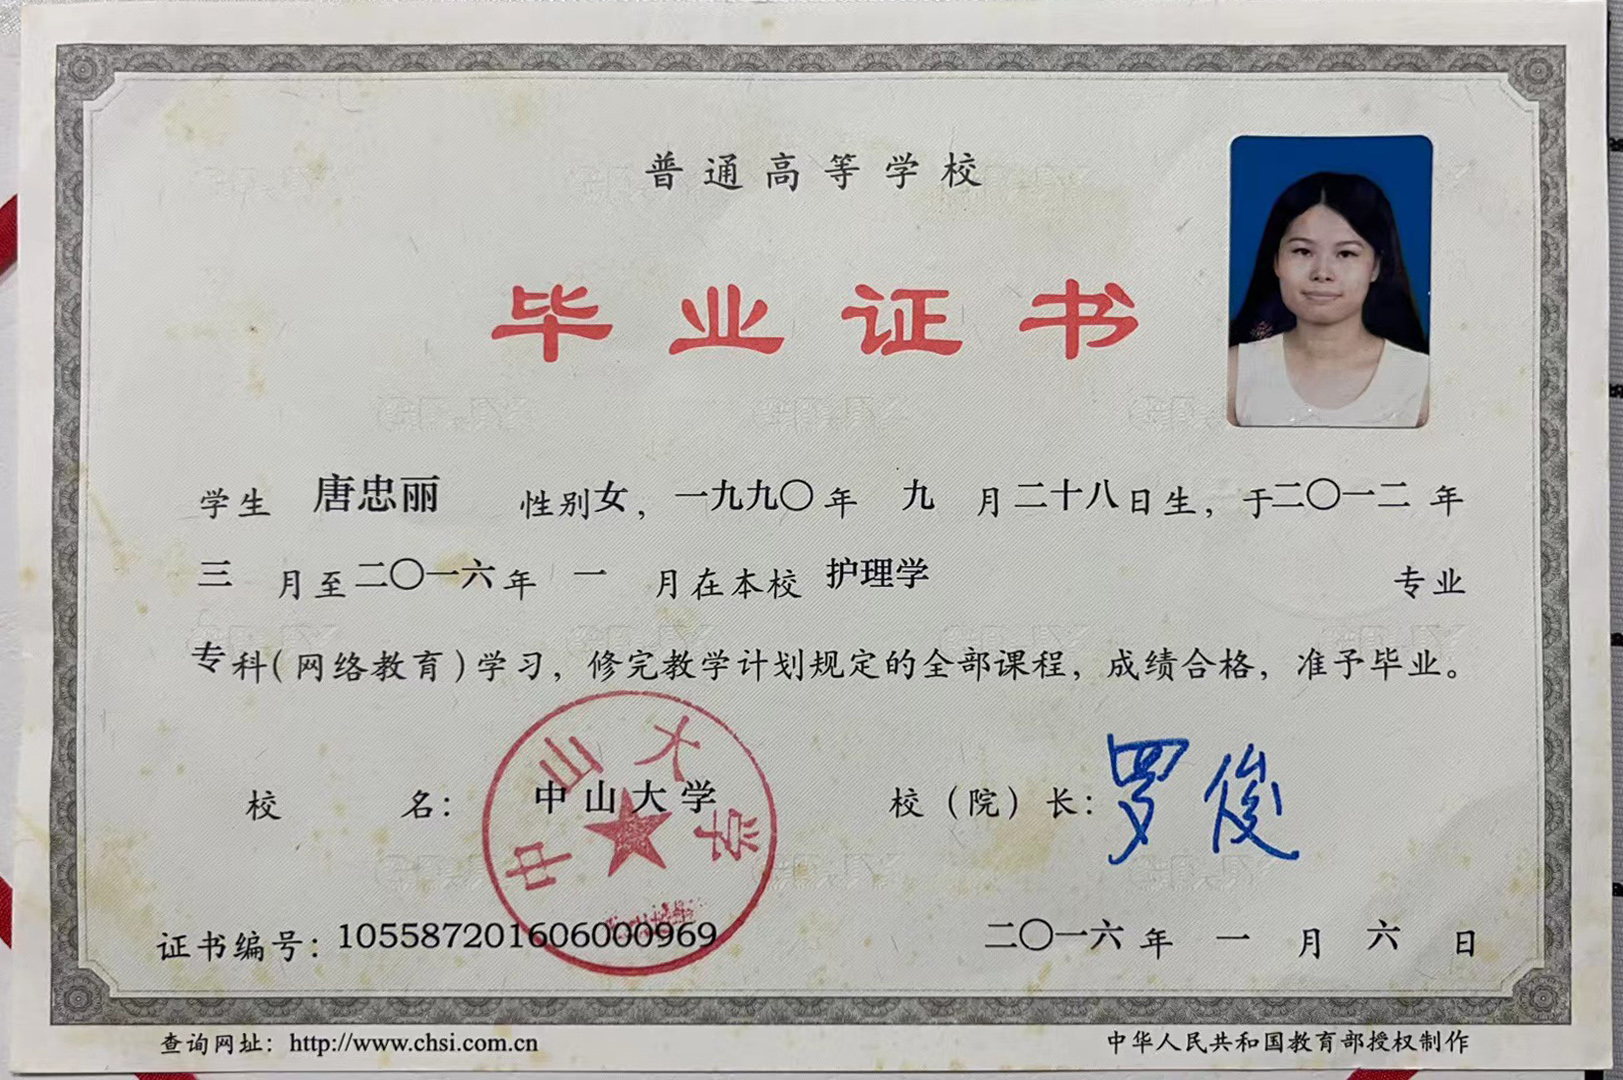 普通高等学校
毕业证书
学生 唐忠丽 性别女，一九九〇年 九 月二十八日生，于二〇一二 年
三 月至二〇一六年 一 月在本校 护理学 专业
专科(网络教育)学习，修完教学计划规定的全部课程，成绩合格，准予毕业。
校 名： 中山大学 校（院）长：罗俊
中山大学
证书编号：105587201606000969 二〇一六年 一 月 六 日
查询网址：http://www.chsi.com.cn 中华人民共和国教育部授权制作